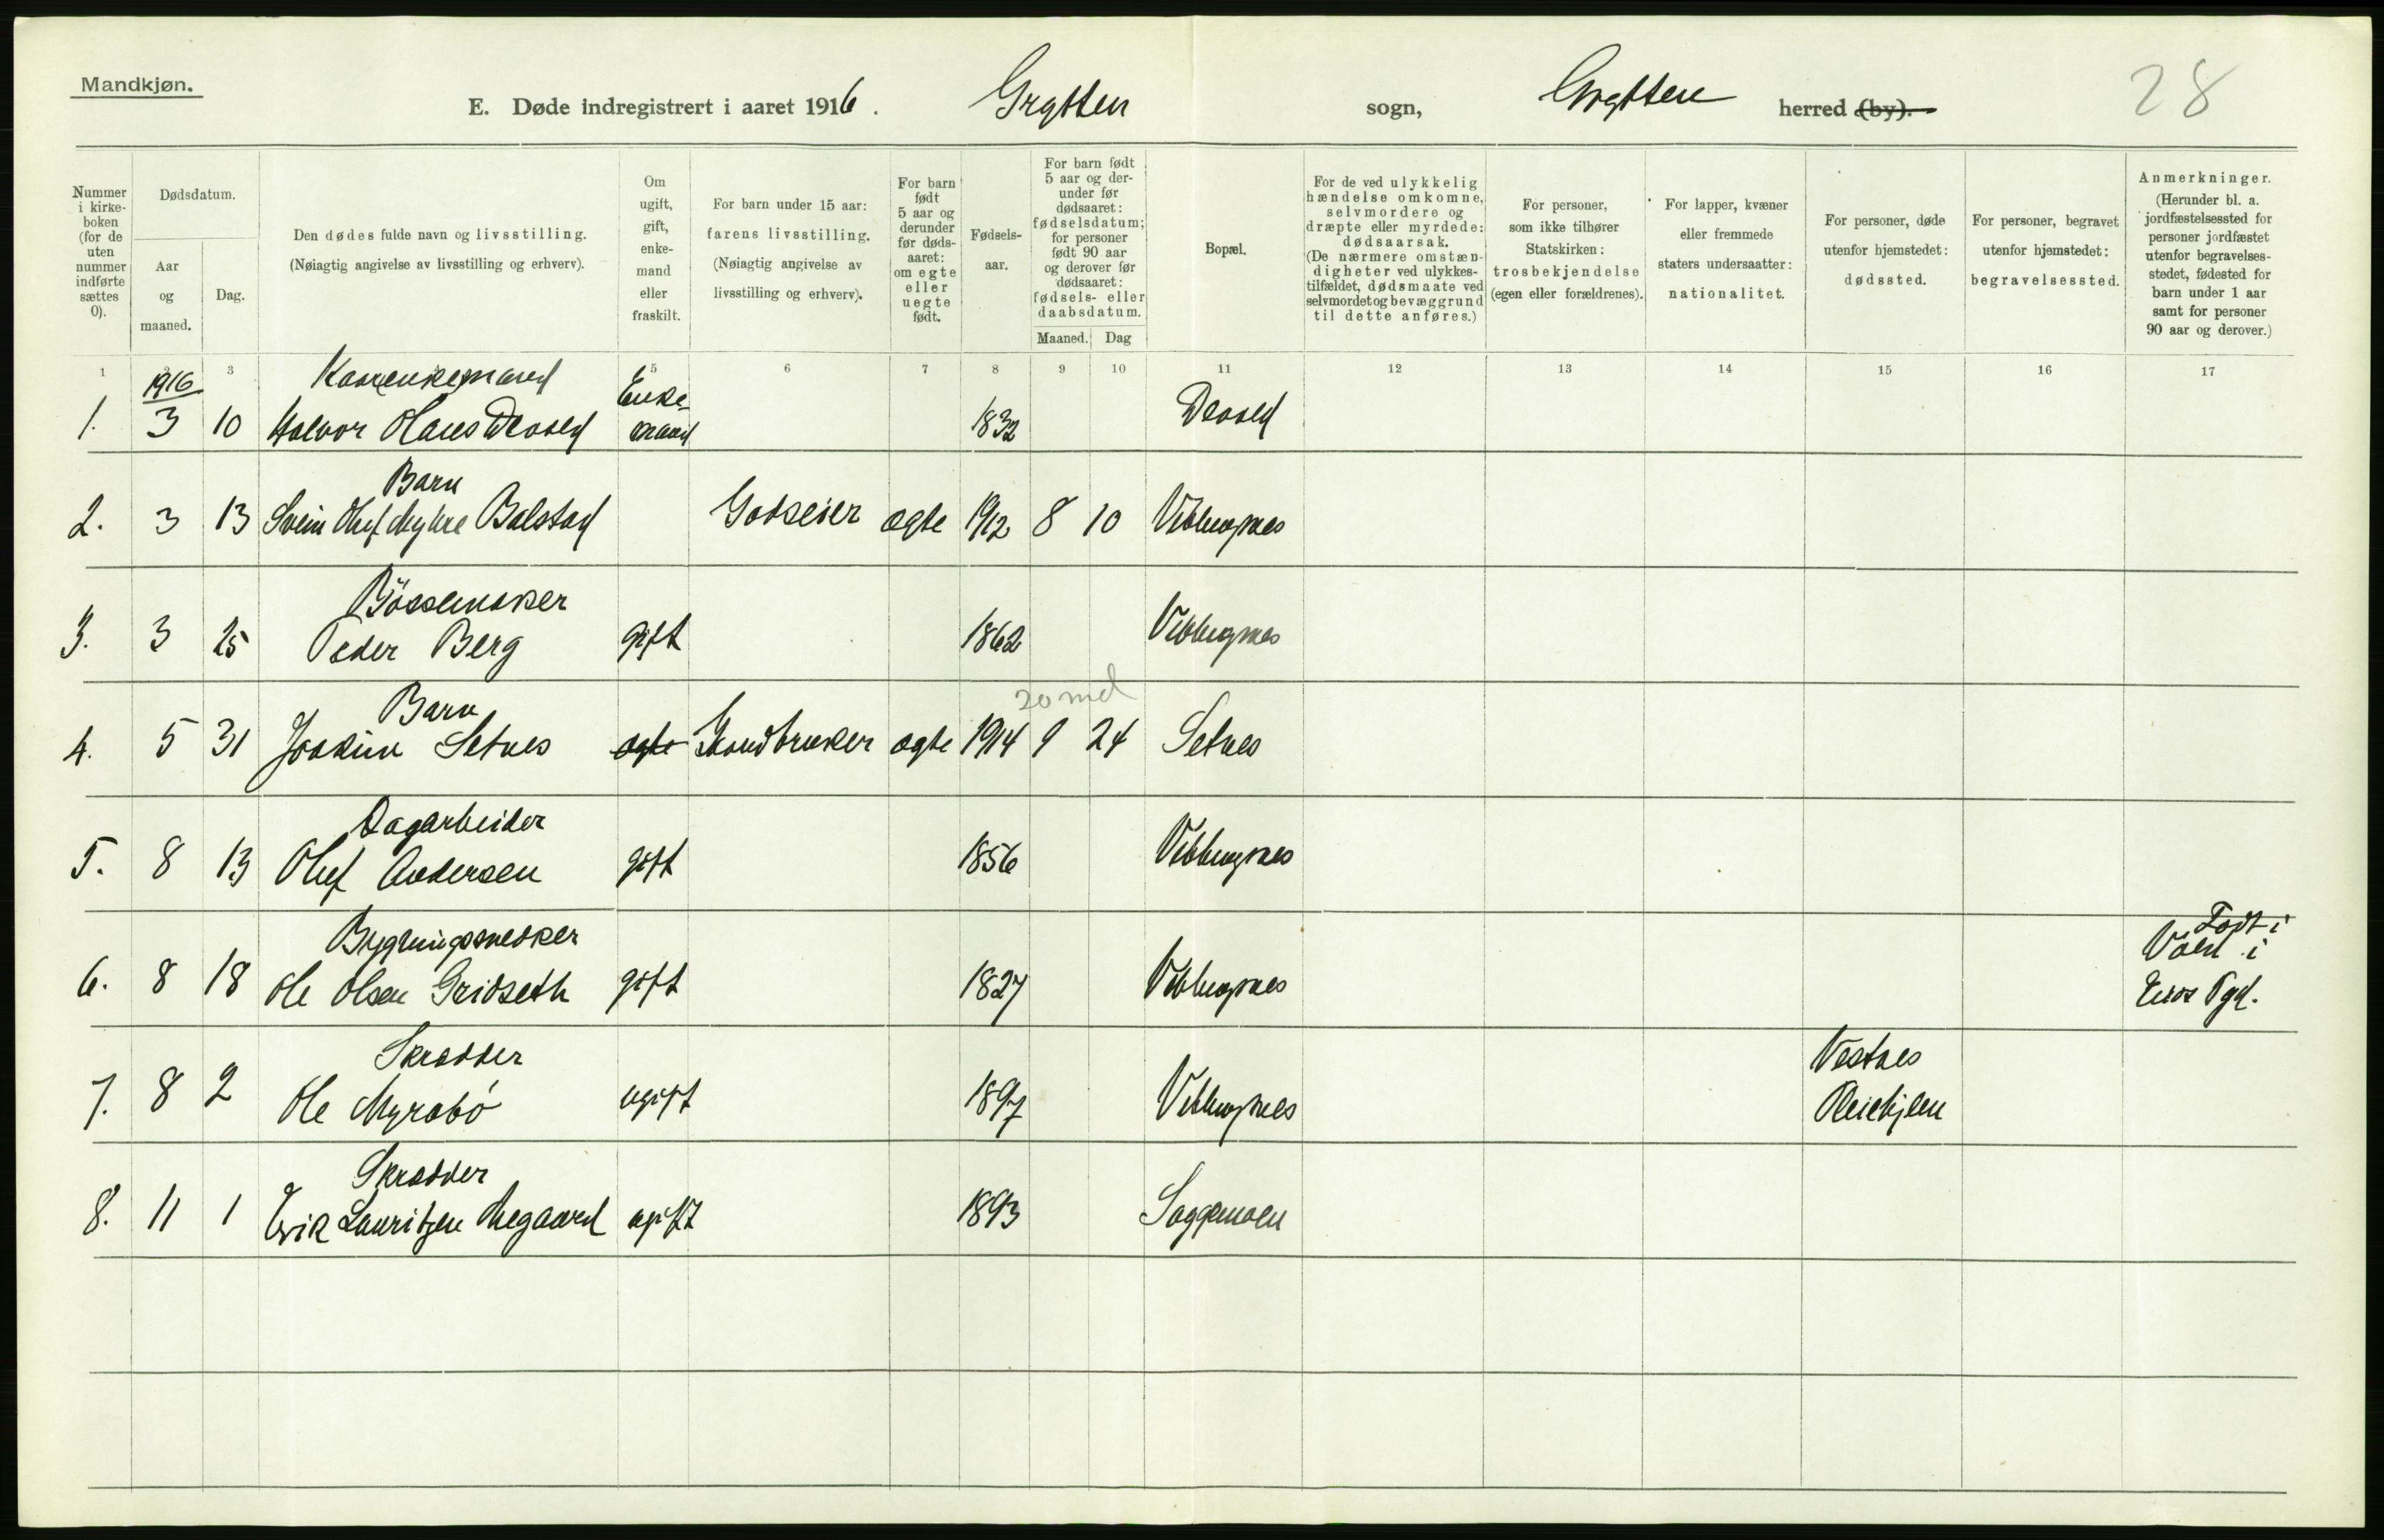 Mandkjøn.
E. Døde indregistrert i aaret 1916. Grytten sogn, Grytten herred (by).
28
Nummer i kirkeboken (for de uten nummer indførte sættes 0).
Dødsdatum.
Aar og maaned.
Dag.
Den dødes fulde navn og livsstilling.
(Nøiagtig angivelse av livsstilling og erhverv).
Om ugift, gift, enkemand eller fraskilt.
For barn under 15 aar: farens livsstilling.
(Nøiagtig angivelse av livsstilling og erhverv).
For barn født 5 aar og derunder før dødsaaret: om egte eller uegte født.
Fødselsaar.
For barn født 5 aar og derunder før dødsaaret: fødselsdatum; for personer født 90 aar og derover før dødsaaret: fødsels- eller daabsdatum.
Maaned. Dag
Bopæl.
For de ved ulykkelig hændelse omkomne, selvmordere og dræpte eller myrdede: dødsaarsak.
(De nærmere omstændigheter ved ulykkestilfældet, dødsmaate ved selvmordet og bevæggrund til dette anføres.)
For personer, som ikke tilhører Statskirken: trosbekjendelse (egen eller forældrenes).
For lapper, kvæner eller fremmede staters undersaatter: nationalitet.
For personer, døde utenfor hjemstedet: dødssted.
For personer, begravet utenfor hjemstedet: begravelsessted.
Anmerkninger.
(Herunder bl. a. jordfæstelsessted for personer jordfæstet utenfor begravelsesstedet, fødested for barn under 1 aar samt for personer 90 aar og derover.)
1 3 5 6 7 8 9 10 11 12 13 14 15 16 17
1916
1. 3 10 Halvor Hans Devold Enkemand 1832 Devold
Barn
2. 3 13 Svein Oluf Myhre Balstad Godseier ægte 1912 8 10 Veblungnes
Bössemaker
3. 3 25 Peder Berg gift 1862 Veblungnes
20 md
Barn
4. 5 31 Joakim Setnes ægte Gaardbruker ægte 1914 9 24 Setnes
Dagarbeider
5. 8 13 Oluf Andersen gift 1856 Veblungnes
Bygningssnedker Födt i
6. 8 18 Ole Olsen Gridseth gift 1827 Veblungnes Vold i
Pgd.
Skrædder Vestnes
7. 8 2 Ole Myrabö ugift 1897 Veblungnes
Skrædder
8. 11 1 Erik Lauritzen ugift 1893 Soggemoen